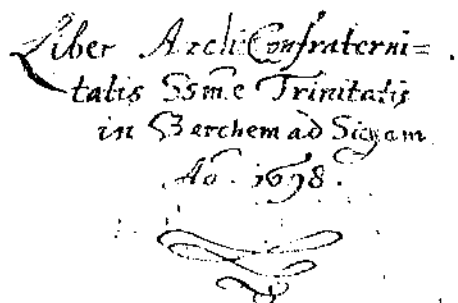 Liber ArchiConfraterni=
tatis Ssmæ Trinitatis
in Berchem ad Sigam
Ao. 1698.